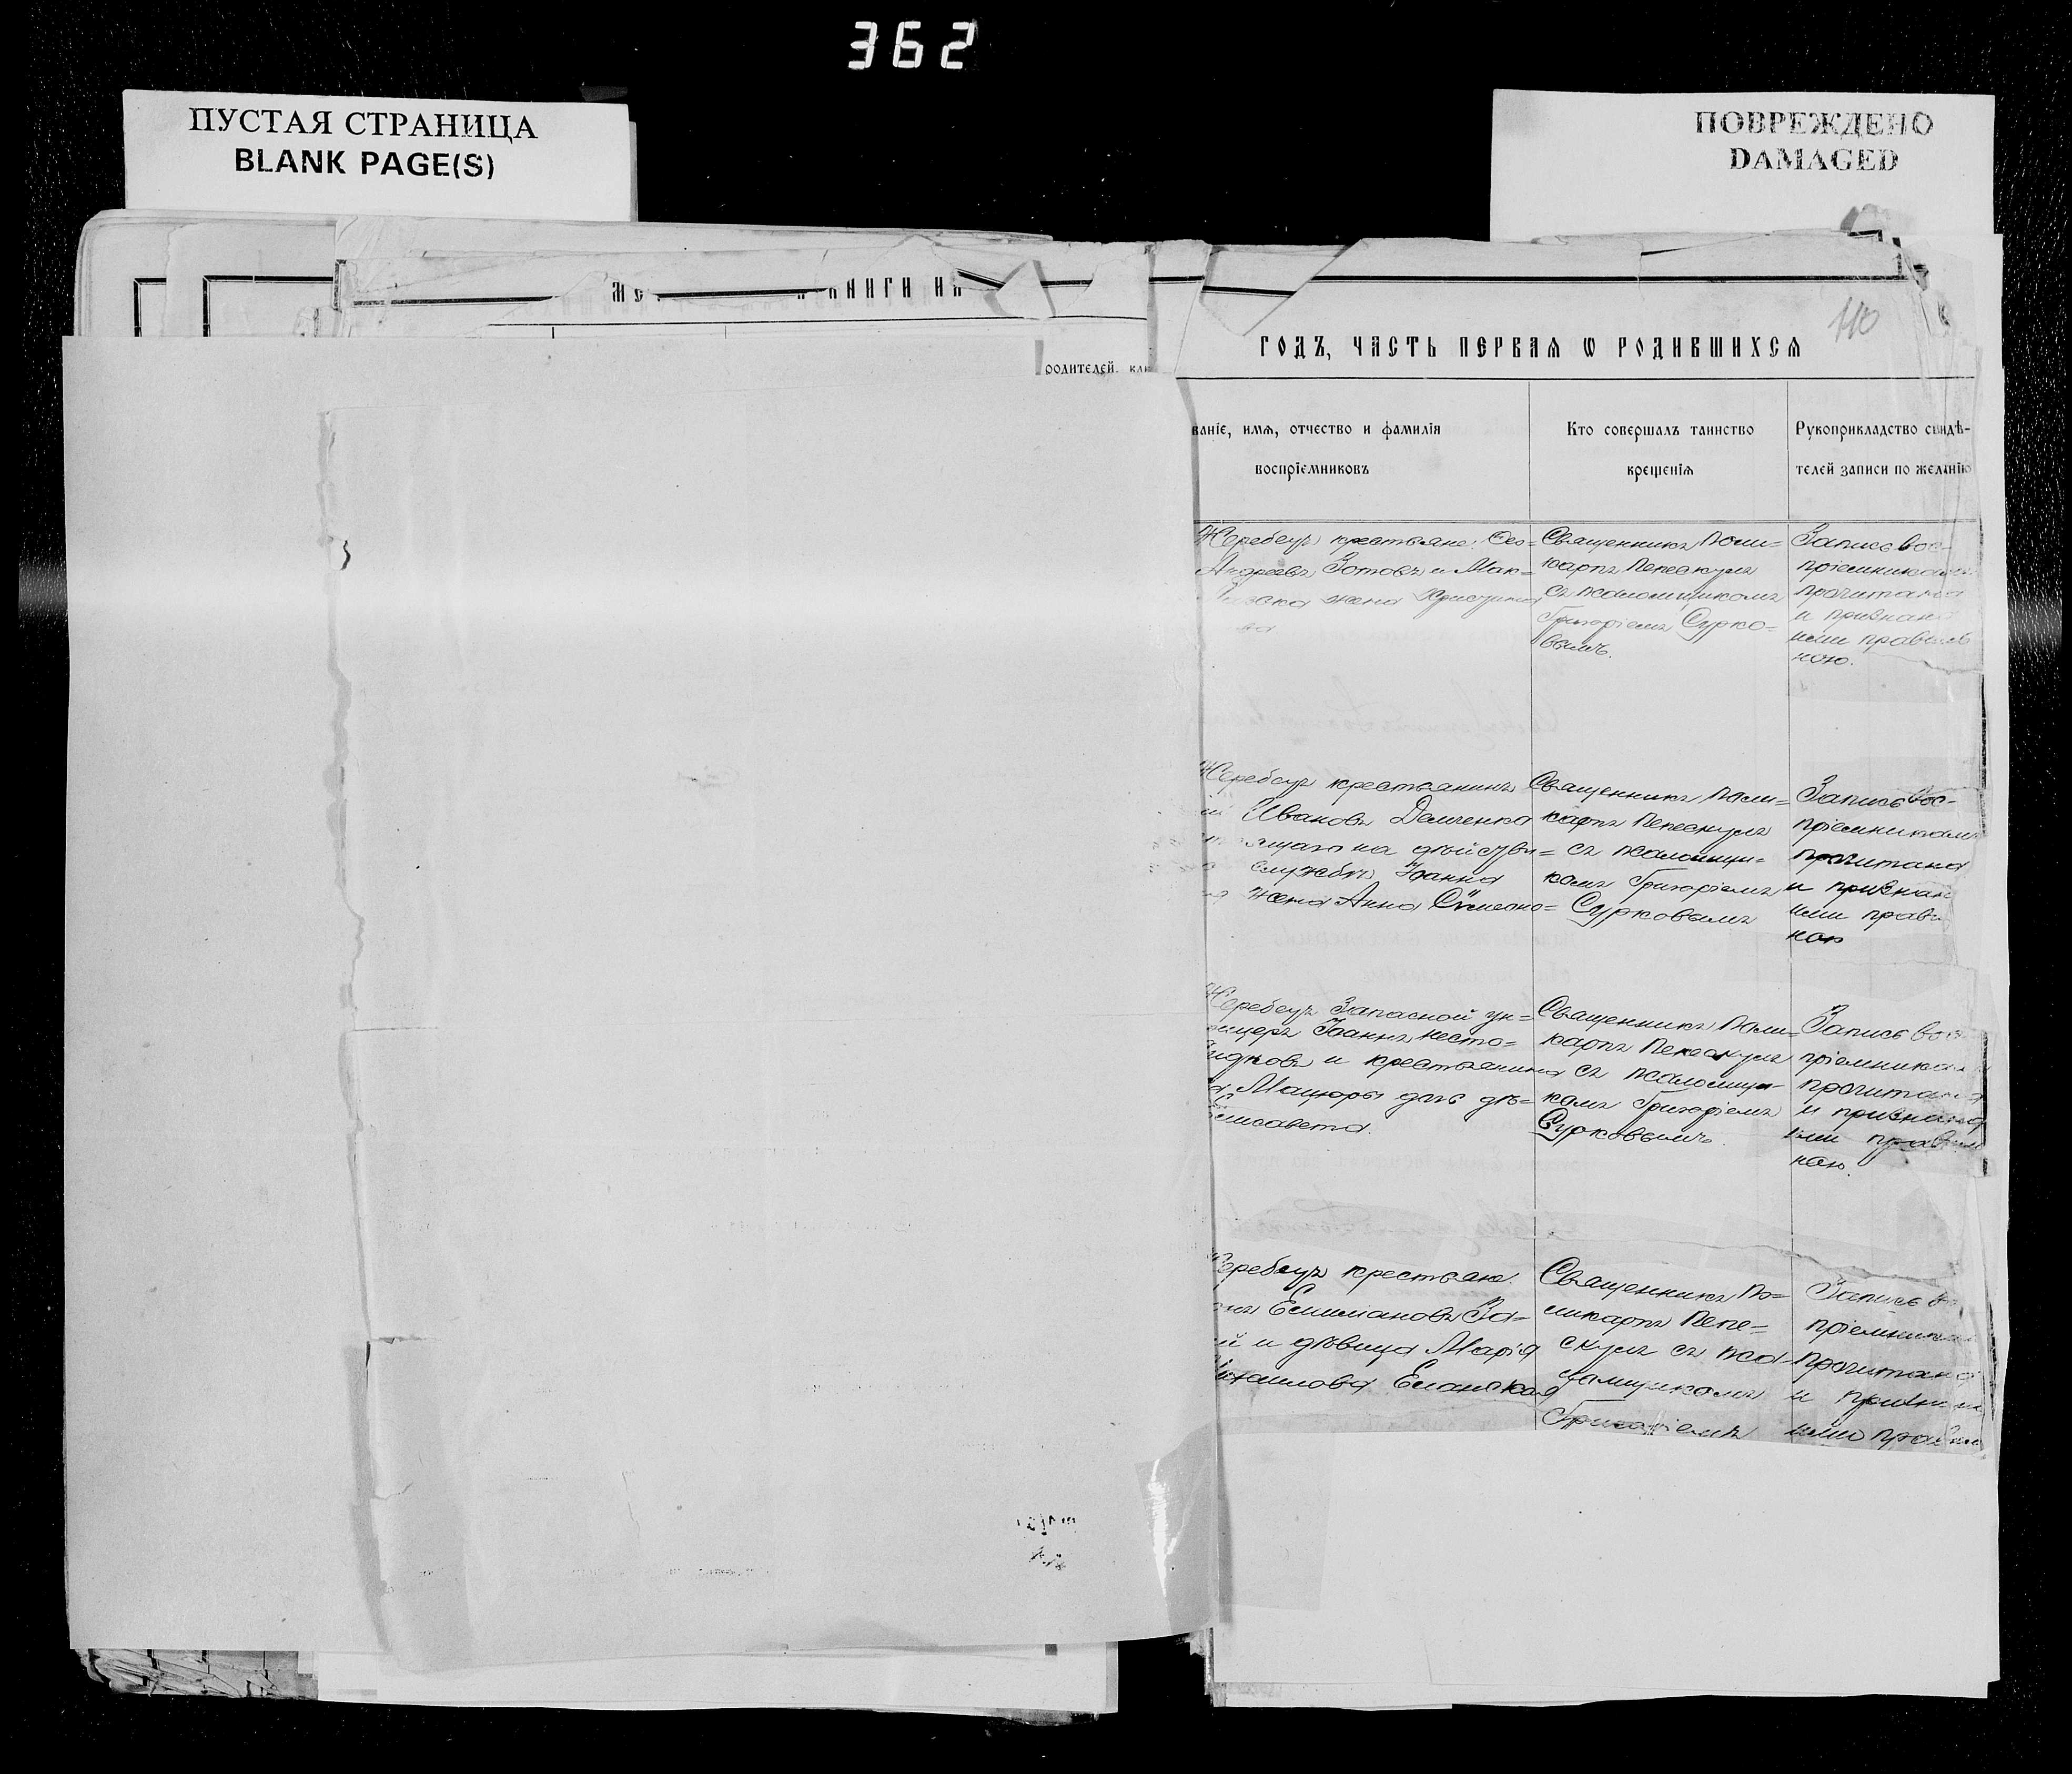 362
ПУСТАЯ СТРАНИЦА
BLANK PAGE(S)
ПОВРЕЖДЕНО
DAMAGED
КНИГИ НА
110
ГОДЪ, ЧАСТЬ ПЕРВАЯ Ѡ РОДИВШИХСЯ
родителей,
званіе, имя, отчество и фамилія
воспріемниковъ
Кто совершалъ таинство
крещенія
Рукоприкладство свидѣ-
телей записи по желанію
Жеребецъ крестьяне:
Андреевъ Зотовъ и Мак=
жена Христина
Священникъ Поли=
карпъ Пепескулъ
съ псаломщикомъ
Григоріемъ Сурко=
вымъ.
Запись вос-
пріемниками
прочитана
и признана
ими правиль
ною.
Жеребецъ крестьянинъ
Ивановъ Демченко
на дѣйстви=
службѣ Іоанна
жена Анна Сѵмеоно=
Священникъ Поли=
карпъ Пепескулъ
съ псаломщи=
комъ Григоріемъ
Сурковымъ
Запись вос-
пріемниками
прочитана
и признан
ими прави
ною
Жеребецъ Запасной ун=
Іоаннъ Несто=
и крестьянина
Мацюры дочь дѣ=
Елисавета.
Священникъ Поли=
карпъ Пепескулъ
съ псаломщи=
комъ Григоріемъ
Сурковымъ.
Запись вос
пріемника
прочитана
и признана
ими правиль
ною.
Жеребецъ крестьяне:
Емиліановъ За=
й и дѣвица Марія
Михаилова Еланская
Священникъ По=
ликарпъ Пепе=
скулъ съ пса=
ломщикомъ
Григоріемъ
Запись во
пріемника
прочитана
и призна
ими правил